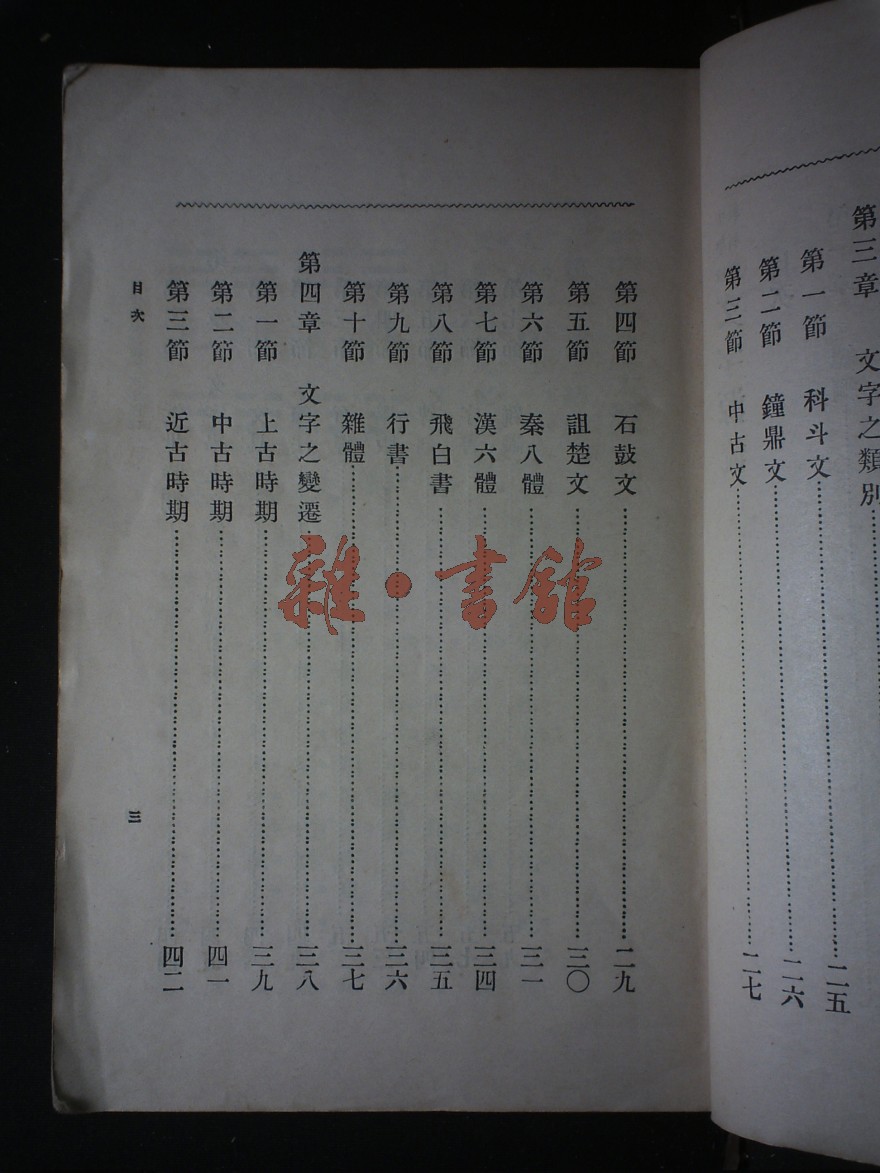 第三章 文字之類別
第一節 科斗文……二五
第二節 鐘鼎文……二六
第三節 中古文……二七
第四節 石鼓文……二九
第五節 詛楚文……三〇
第六節 秦八體……三一
第七節 漢六體……三四
第八節 飛白書……三五
第九節 行書……三六
第十節 雜體……三七
第四章 文字之變遷……三八
第一節 上古時期……三九
第二節 中古時期……四一
第三節 近古時期……四二
目次 三
雜·書館